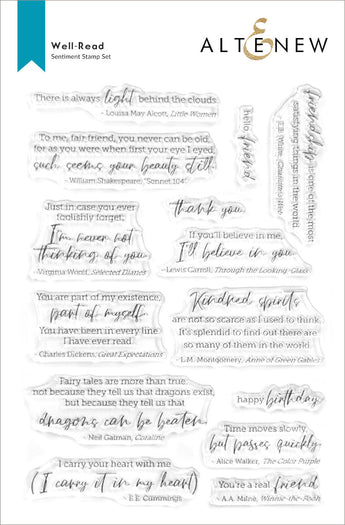 Well-Read
Sentiment Stamp Set
ALTENEW
There is always light behind the clouds.
- Louisa May Alcott, Little Women
To me, fair friend, you never can be old,
for as you were when first your eye I eyed,
such seems your beauty still.
- William Shakespeare, "Sonnet 104"
hello friend
Friendship is one of the most
satisfying things in the world.
- E.B. White, Charlotte's Web
Just in case you ever
foolishly forget;
I'm never not
thinking of you.
- Virginia Woolf, Selected Diaries
thank you
If you'll believe in me,
I'll believe in you.
- Lewis Carroll, Through the Looking-Glass
You are part of my existence,
part of myself.
You have been in every line
I have ever read.
- Charles Dickens, Great Expectations
Kindred spirits
are not so scarce as I used to think.
It's splendid to find out there are
so many of them in the world.
- L.M. Montgomery, Anne of Green Gables
Fairy tales are more than true:
not because they tell us that dragons exist,
but because they tell us that
dragons can be beaten.
- Neil Gaiman, Coraline
happy birthday
Time moves slowly,
but passes quickly.
- Alice Walker, The Color Purple
I carry your heart with me
(I carry it in my heart)
- E.E. Cummings
You're a real friend
- A.A. Milne, Winnie-the-Pooh